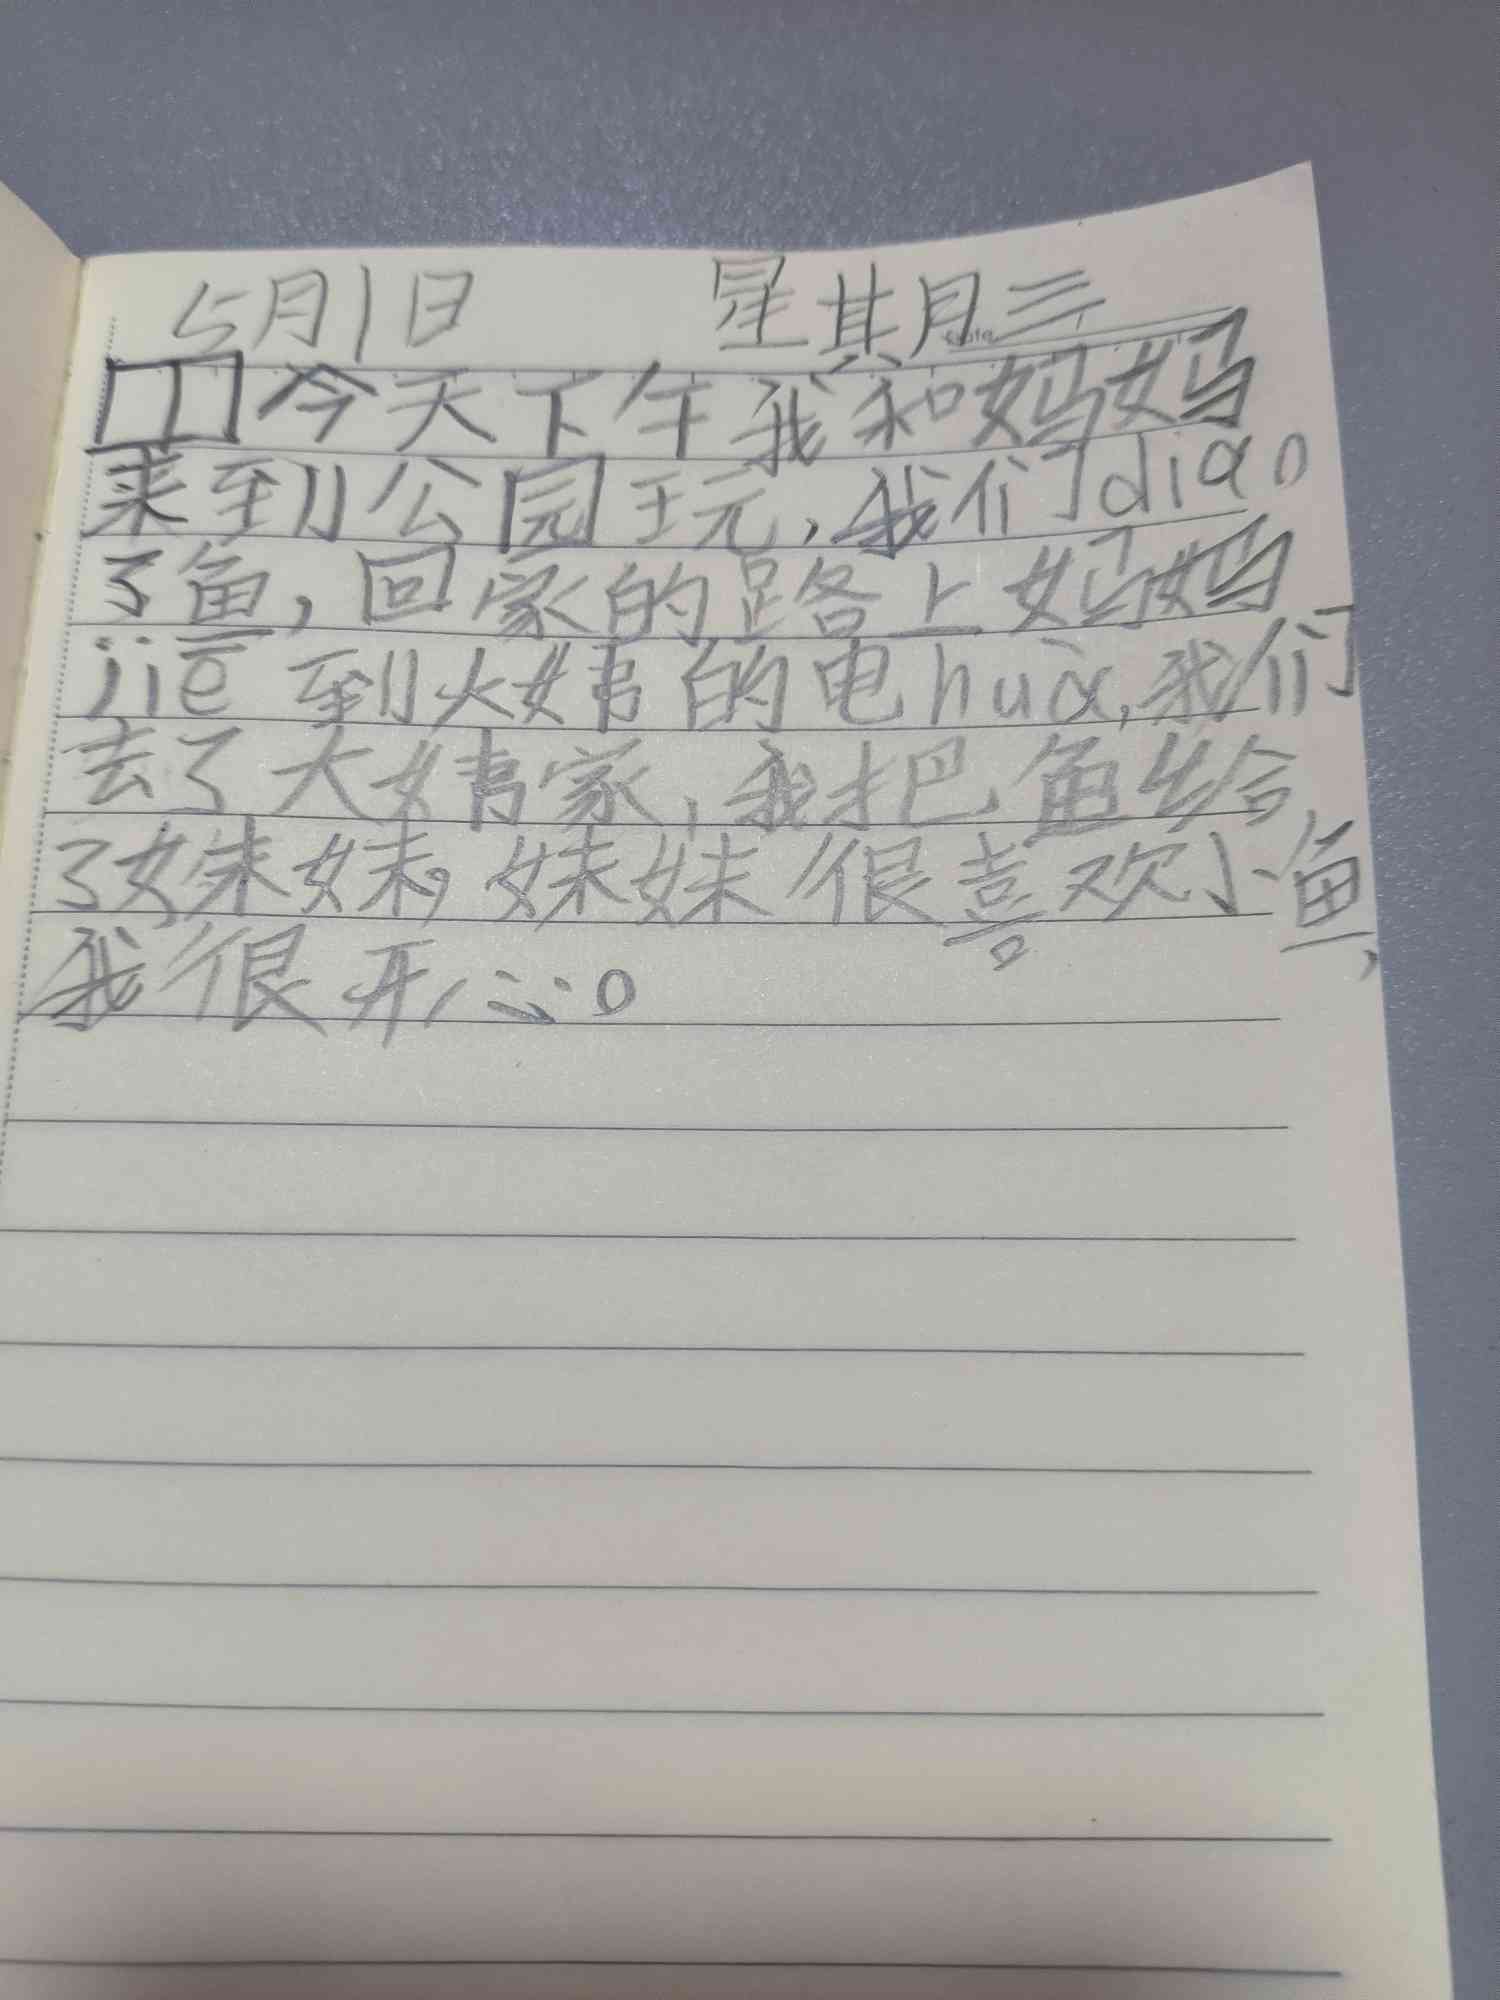 5月1日 星期三
今天下午我和妈妈
来到公园玩,我们diao
了鱼,回家的路上妈妈
jiē到大姨的电huà,我们
去了大姨家,我把鱼给
了妹妹,妹妹很喜欢小鱼,
我很开心。